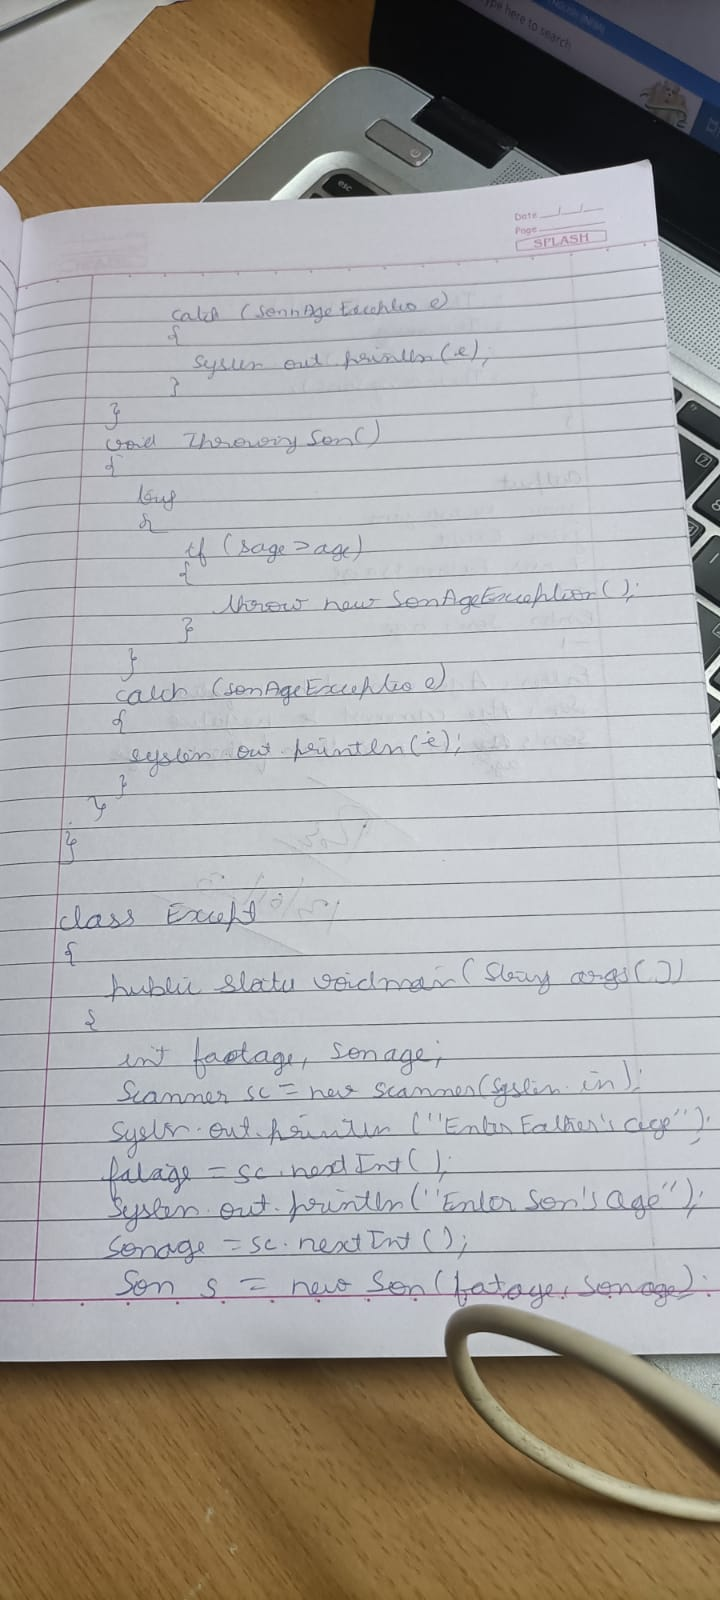 ype here to search
esc
Date
Page
SPLASH
catch (SonnAgeExceptio e)
{
System out println(e);
}
}
void Throwing Son()
{
try
{
if (sage>age)
{
throw new SonAgeException();
}
}
catch (SonAgeExceptio e)
{
system out println(e);
}
}
}
class Except
{
public static void main(String args[])
{
int faotage, sonage;
Scanner sc = new Scanner(System.in);
System.out.println ("Enter Father's age");
fatage = sc.nextInt();
System.out.println("Enter Son's Age");
Sonage = sc.nextInt();
Son s = new Son(fatage, sonage);